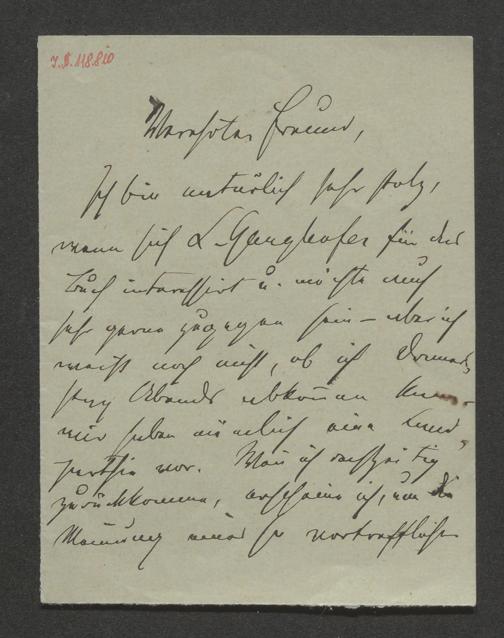 I.N. 118.810
Verehrter Freund,
Ich bin natürlich sehr stolz,
wenn sich L. Ganghofer für das
Buch interessirt u. möchte auch
sehr gerne zugegen sein – aber ich
weiß noch nicht, ob ich Donners-
tag Abends abkom̄en kann,
wir haben nämlich eine Land-
parthie vor. Wen̄ ich rechtzeitig
zurückkomme, erscheine ich, um die
Meinung eines so vortrefflichen